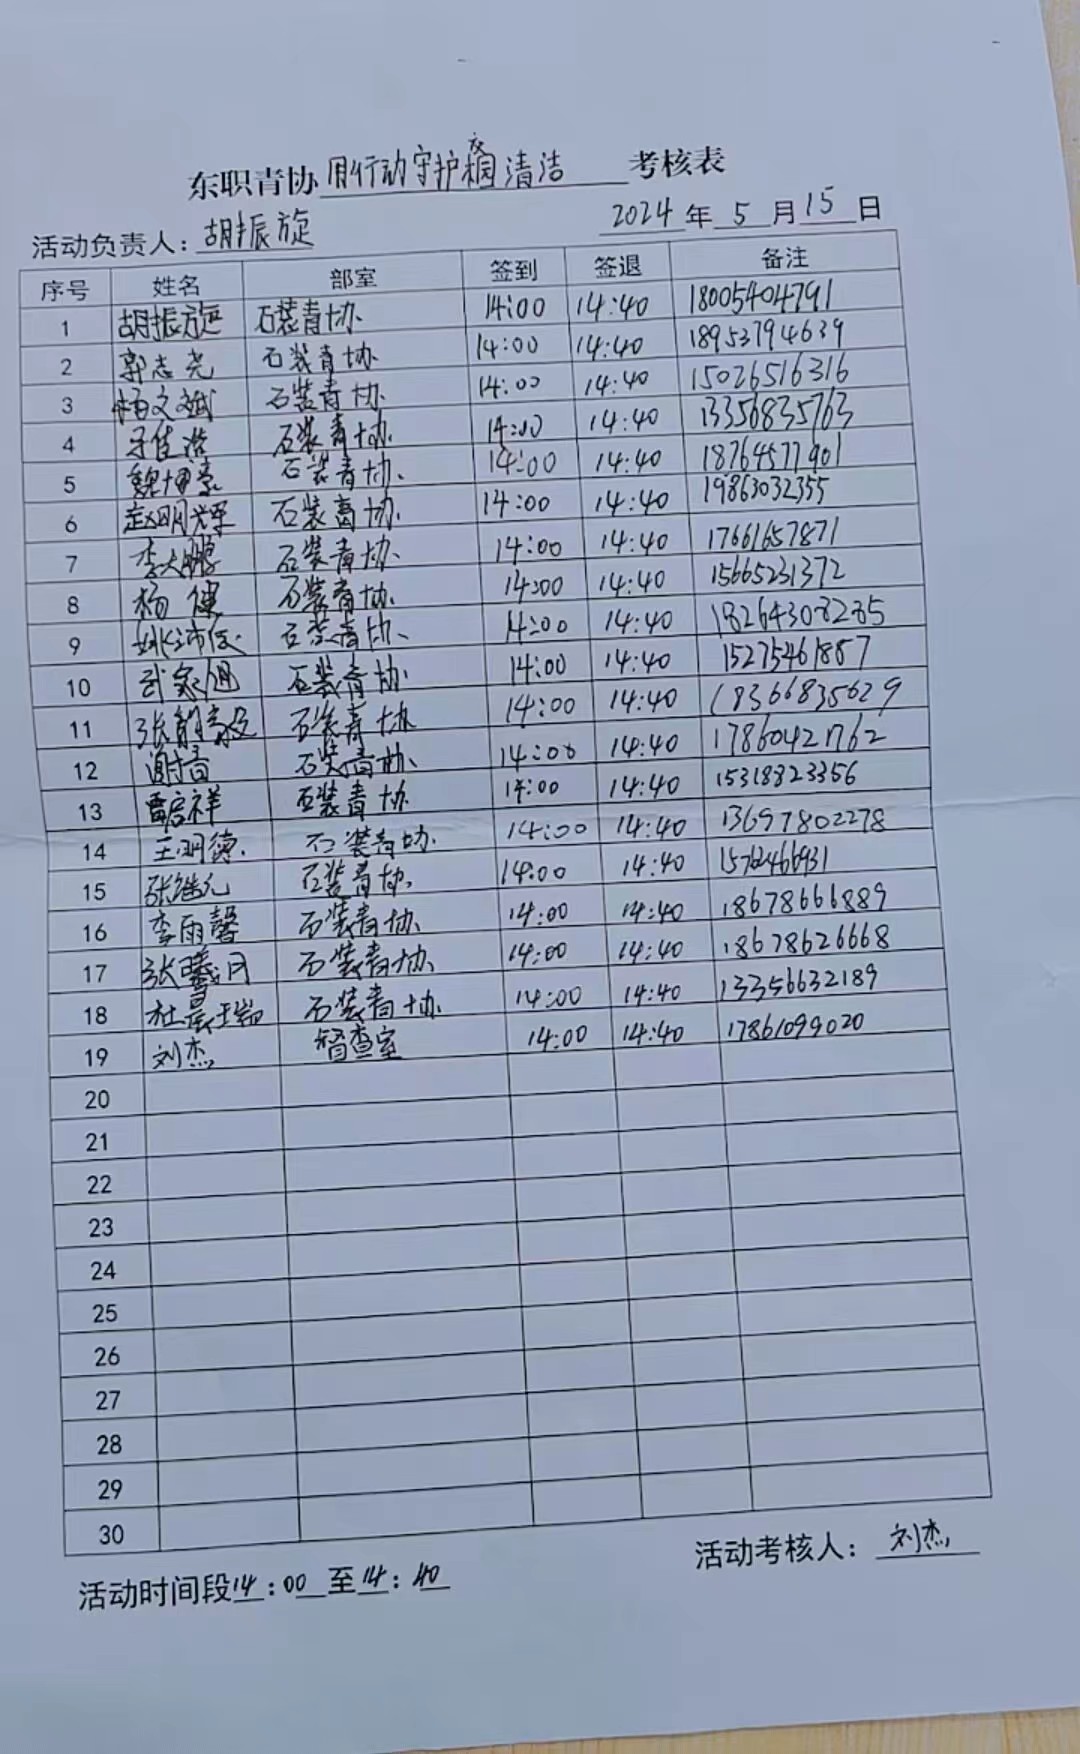 东职青协用行动守护校园清洁考核表
活动负责人：胡振旋 2024年5月15日
序号 姓名 部室 签到 签退 备注
1 胡振旋 石装青协 14:00 14:40 18005404791
2 郭志尧 石装青协 14:00 14:40 18953794639
3 杨文斌 石装青协 14:00 14:40 15026516316
4 于佳浩 石装青协 14:00 14:40 13356835763
5 魏 石装青协 14:00 14:40 18764577901
6 赵明辉 石装青协 14:00 14:40 19863032355
7 李大鹏 石装青协 14:00 14:40 17661657871
8 杨健 石装青协 14:00 14:40 15665231372
9 石装青协 14:00 14:40
10 武家旭 石装青协 14:00 14:40 15275461887
11 张 石装青协 14:00 14:40 18366835629
12 谢奇 石装青协 14:00 14:40 17860421762
13 雷启祥 石装青协 14:00 14:40 15318823356
14 王明德 石装青协 14:00 14:40 13697802278
15 张继元 石装青协 14:00 14:40 15762466931
16 李雨馨 石装青协 14:00 14:40 18678666889
17 张曦月 石装青协 14:00 14:40 18678626668
18 杜晨瑞 石装青协 14:00 14:40 13356632189
19 刘杰 督查室 14:00 14:40 17861099020
20
21
22
23
24
25
26
27
28
29
30
活动考核人：刘杰
活动时间段14:00至14:40